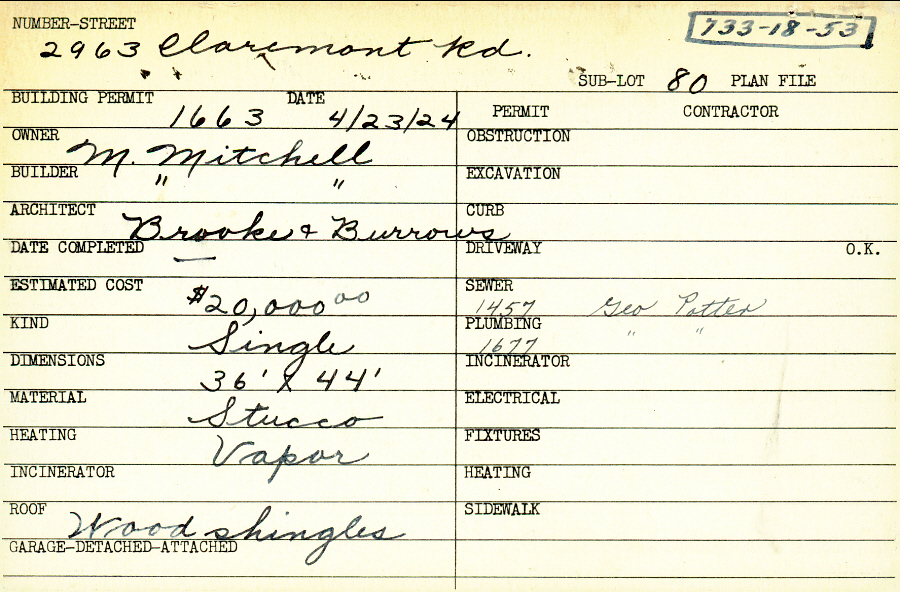 NUMBER-STREET
733-18-53
2963 Claremont Rd.
SUB-LOT 80 PLAN FILE
BUILDING PERMIT 1663 DATE 4/23/24
PERMIT CONTRACTOR
OWNER M. Mitchell
OBSTRUCTION
BUILDER " "
EXCAVATION
ARCHITECT Brooke & Burrows
CURB
DATE COMPLETED —
DRIVEWAY O.K.
ESTIMATED COST $20,000 00
SEWER 1457 Geo Potter
KIND Single
PLUMBING 1677 " "
DIMENSIONS 36' X 44'
INCINERATOR
MATERIAL Stucco
ELECTRICAL
HEATING Vapor
FIXTURES
INCINERATOR
HEATING
ROOF Wood shingles
SIDEWALK
GARAGE-DETACHED-ATTACHED